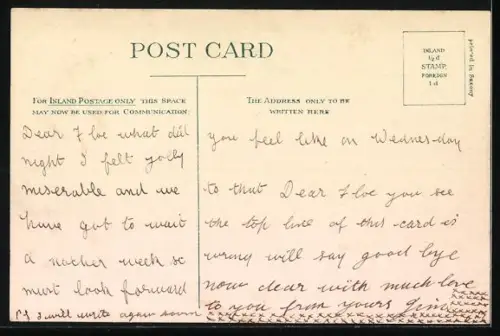 POST CARD
FOR INLAND POSTAGE ONLY THIS SPACE
MAY NOW BE USED FOR COMMUNICATION.
Dear Floe what did
night I felt jolly
miserable and we
have got to wait
a nother week so
must look forward
P.S I will write again soon
THE ADDRESS ONLY TO BE
WRITTEN HERE
INLAND
½d
STAMP
FOREIGN
1d
Printed in Saxony
you feel like on Wednesday
to that Dear Floe you see
the top line of this card is
wrong will say good bye
now dear with much love
to you from yours
xxxxxxxxxxxx